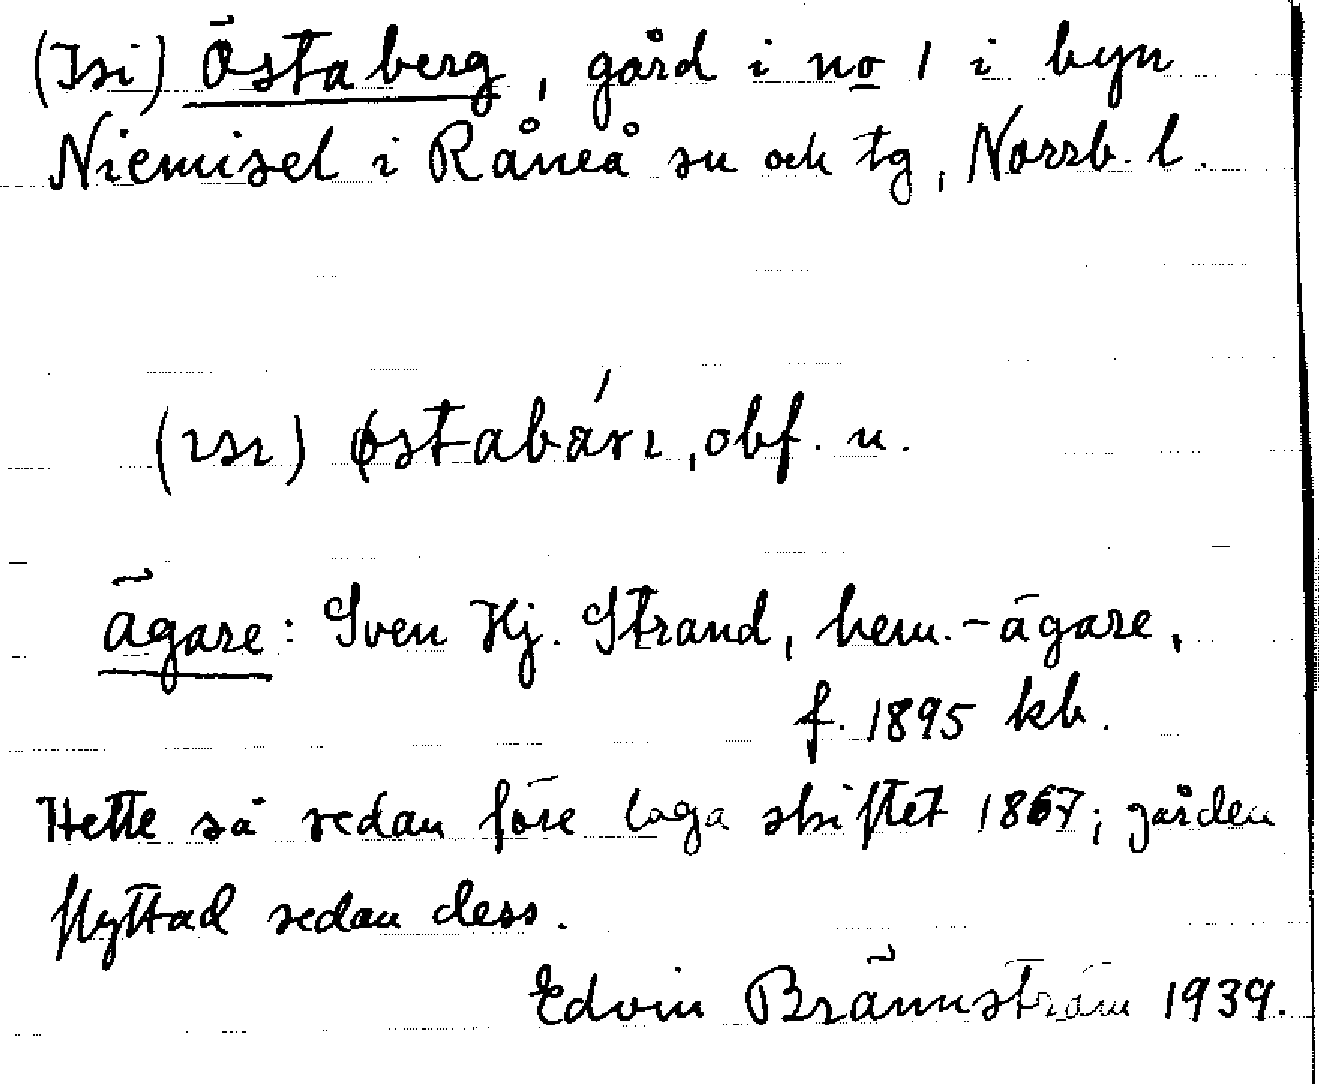 (Isi) Östaberg, gård i no 1 i byn
Niemisel i Råneå sn och tg, Norrb. l.
(ısı) østabárı, obf. n.
Ägare: Sven Hj. Strand, hem.-ägare,
f. 1895 kb.
Hette så redan före laga skiftet 1867; gården
flyttad sedan dess.
Edvin Brännström 1939.